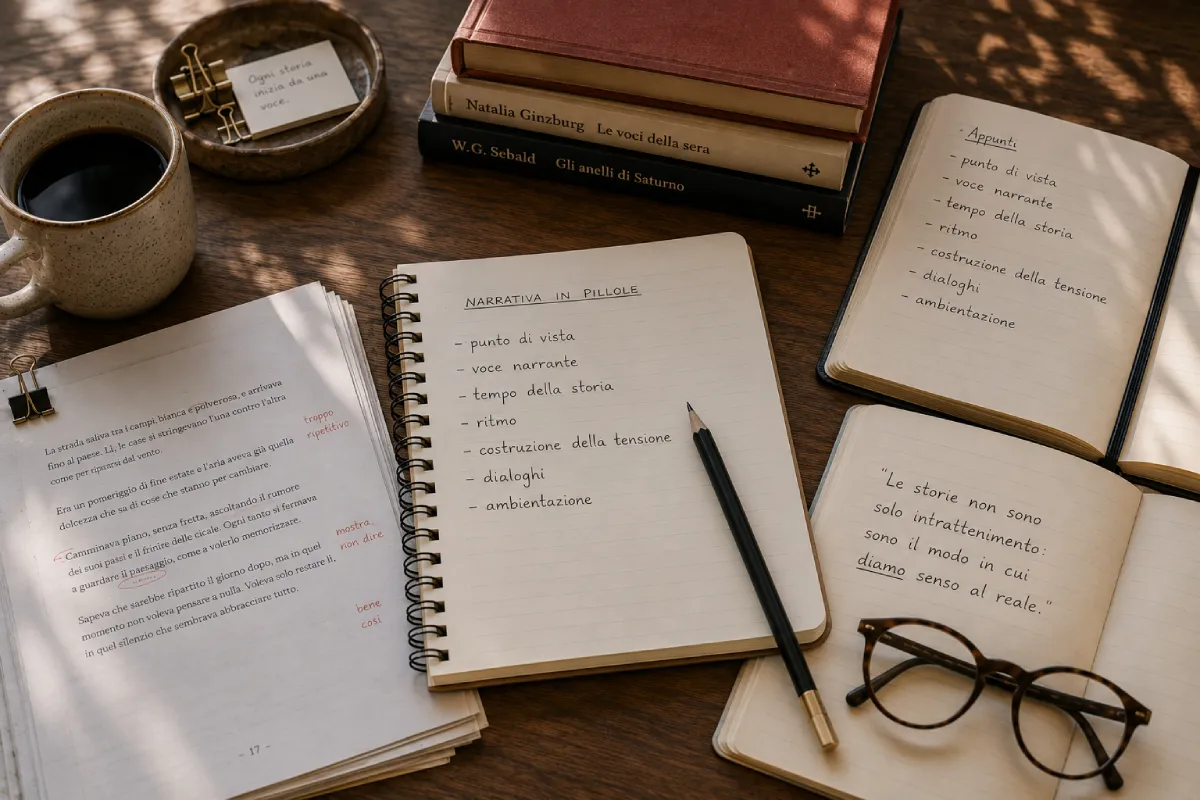 Ogni storia
inizia da una
voce.
Natalia Ginzburg Le voci della sera
W.G. Sebald Gli anelli di Saturno
Appunti
- punto di vista
- voce narrante
- tempo della storia
- ritmo
- costruzione della tensione
- dialoghi
- ambientazione
NARRATIVA IN PILLOLE
- punto di vista
- voce narrante
- tempo della storia
- ritmo
- costruzione della tensione
- dialoghi
- ambientazione
La strada saliva tra i campi, bianca e polverosa, e arrivava
fino al paese. Lì, le case si stringevano l'una contro l'altra
come per ripararsi dal vento.
troppo
ripetitivo
Era un pomeriggio di fine estate e l'aria aveva già quella
dolcezza che sa di cose che stanno per cambiare.
Camminava piano, senza fretta, ascoltando il rumore
dei suoi passi e il frinire delle cicale. Ogni tanto si fermava
a guardare il paesaggio, come a volerlo memorizzare.
mostra,
non dire
Sapeva che sarebbe ripartito il giorno dopo, ma in quel
momento non voleva pensare a nulla. Voleva solo restare lì,
in quel silenzio che sembrava abbracciare tutto.
bene
così
- 17 -
"Le storie non sono
solo intrattenimento:
sono il modo in cui
diamo senso al reale."